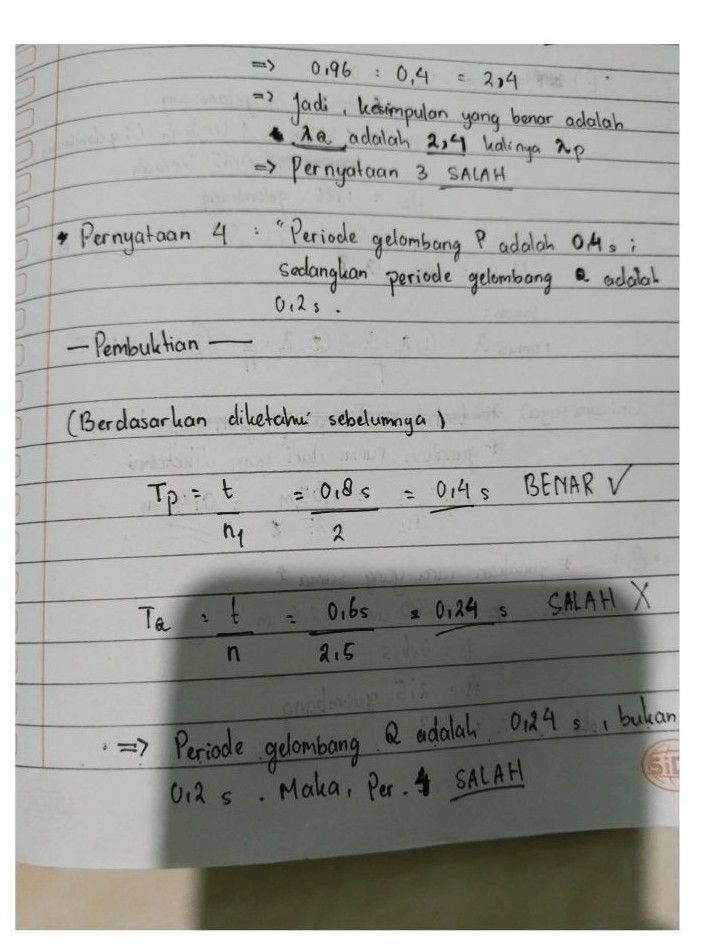 => 0,96 : 0,4 = 2,4
=> Jadi, kesimpulan yang benar adalah
λQ adalah 2,4 kalinya λp
=> Pernyataan 3 SALAH
* Pernyataan 4 : "Periode gelombang P adalah 0,4 s ;
sedangkan periode gelombang Q adalah
0,2 s .
— Pembuktian —
(Berdasarkan diketahui sebelumnya)
Tp = t/n1 = 0,8 s/2 = 0,4 s BENAR ✓
TQ = t/n = 0,6s/2,5 = 0,24 s SALAH X
=> Periode gelombang Q adalah 0,24 s , bukan
0,2 s . Maka, Per. 4 SALAH